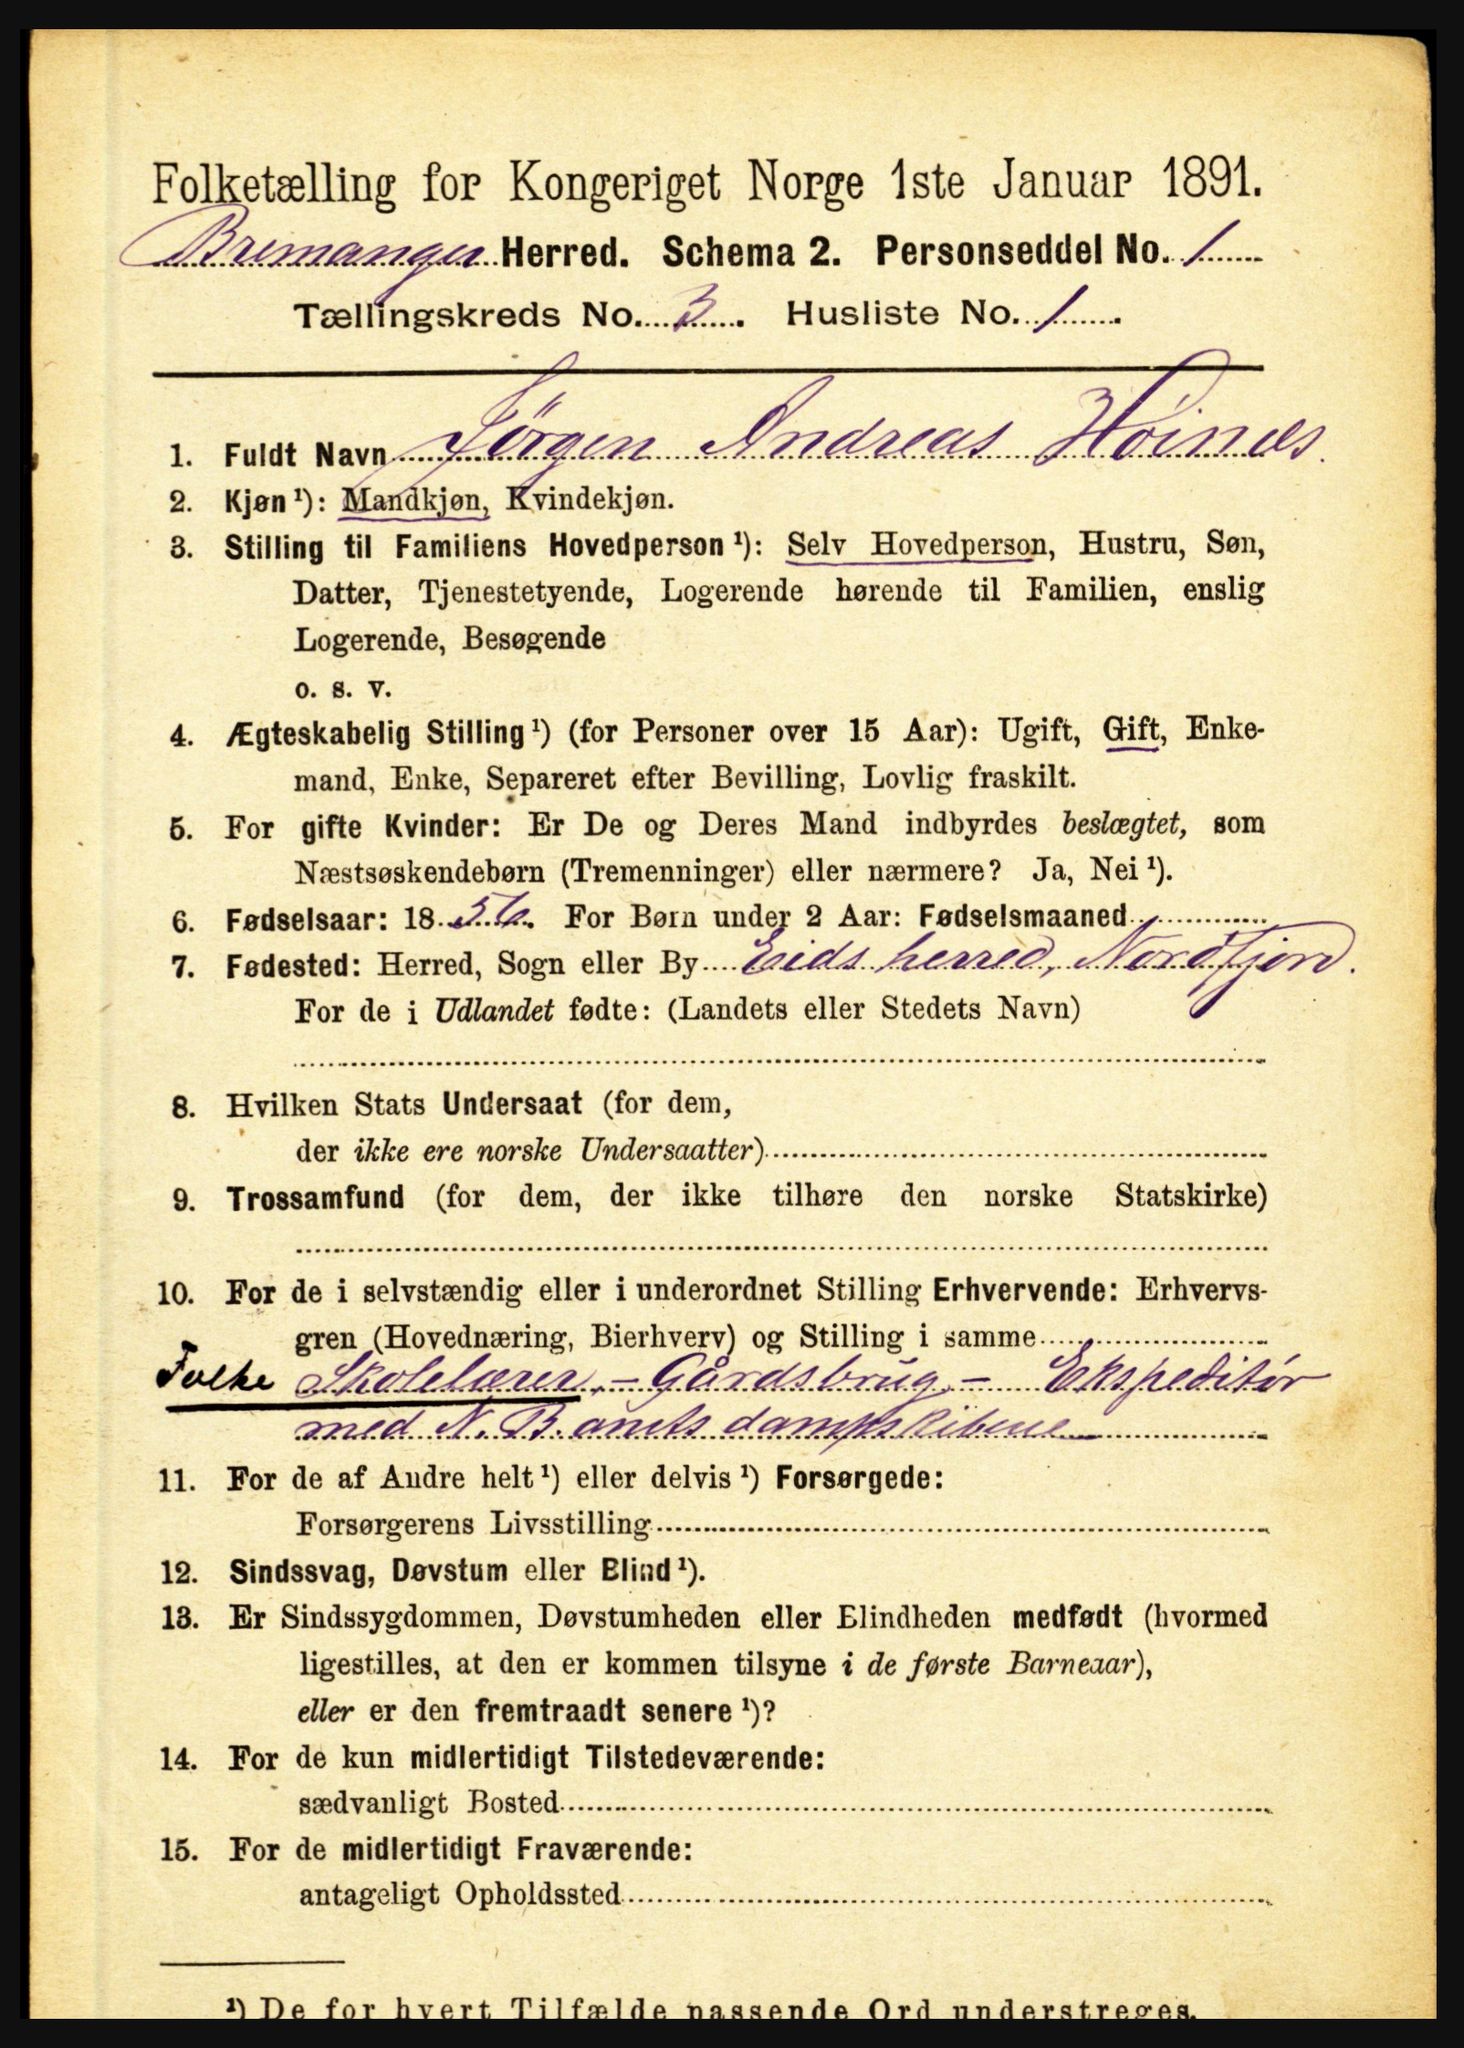 Folketælling for Kongeriget Norge 1ste Januar 1891.
Bremanger Herred. Schema 2. Personseddel No. 1
Tællingskreds No. 3. Husliste No. 1.
1. Fuldt Navn Jörgen Andreas Höinæs.
2. Kjøn ¹): Mandkjøn, Kvindekjøn.
3. Stilling til Familiens Hovedperson ¹): Selv Hovedperson, Hustru, Søn,
Datter, Tjenestetyende, Logerende hørende til Familien, enslig
Logerende, Besøgende
o. s. v.
4. Ægteskabelig Stilling ¹) (for Personer over 15 Aar): Ugift, Gift, Enke-
mand, Enke, Separeret efter Bevilling, Lovlig fraskilt.
5. For gifte Kvinder: Er De og Deres Mand indbyrdes beslægtet, som
Næstsøskendebørn (Tremenninger) eller nærmere? Ja, Nei ¹).
6. Fødselsaar: 1856. For Børn under 2 Aar: Fødselsmaaned
7. Fødested: Herred, Sogn eller By Eids herred, Nordfjord.
For de i Udlandet fødte: (Landets eller Stedets Navn)
8. Hvilken Stats Undersaat (for dem,
der ikke ere norske Undersaatter)
9. Trossamfund (for dem, der ikke tilhøre den norske Statskirke)
10. For de i selvstændig eller i underordnet Stilling Erhvervende: Erhvervs-
gren (Hovednæring, Bierhverv) og Stilling i samme
Folke Skolelærer, - Gårdsbrug, - Ekspeditör
med N. B. amts dampskibene
11. For de af Andre helt ¹) eller delvis ¹) Forsørgede:
Forsørgerens Livsstilling
12. Sindssvag, Døvstum eller Blind ¹).
13. Er Sindssygdommen, Døvstumheden eller Blindheden medfødt (hvormed
ligestilles, at den er kommen tilsyne i de første Barneaar),
eller er den fremtraadt senere ¹)?
14. For de kun midlertidigt Tilstedeværende:
sædvanligt Bosted
15. For de midlertidigt Fraværende:
antageligt Opholdssted
¹) De for hvert Tilfælde passende Ord understreges.